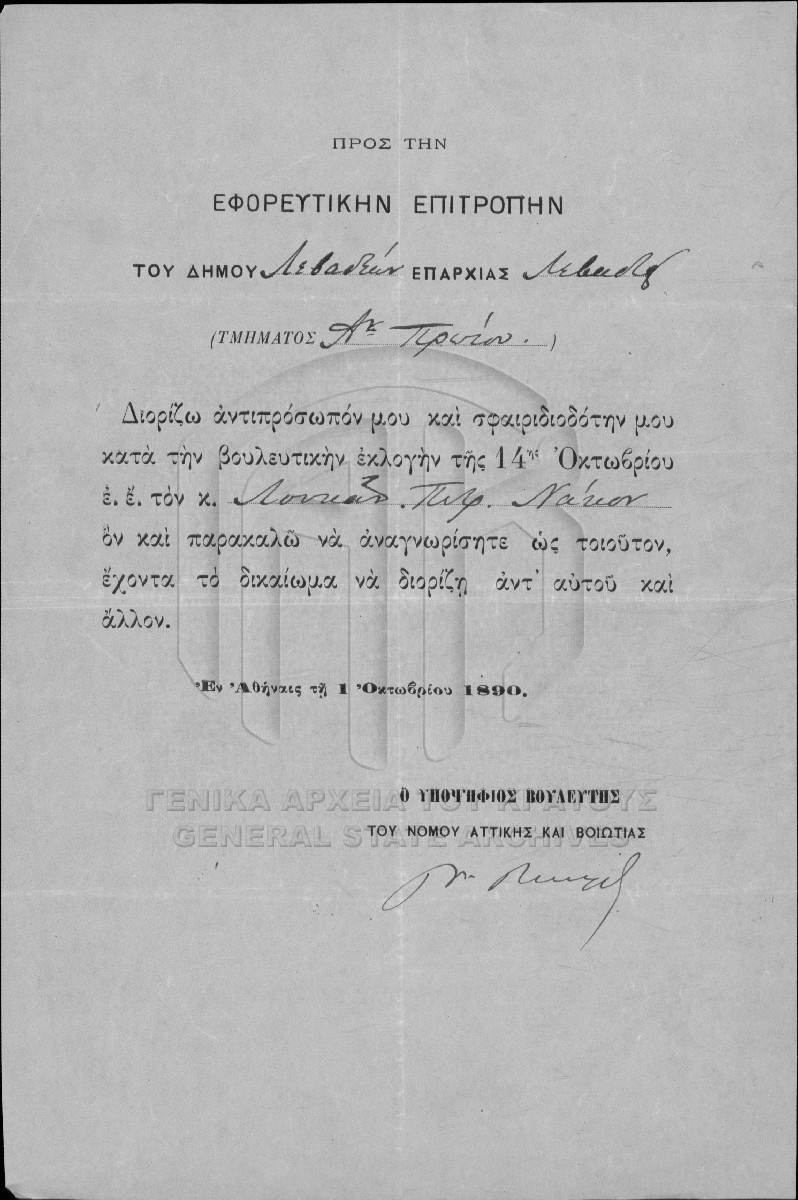 ΠΡΟΣ ΤΗΝ
ΕΦΟΡΕΥΤΙΚΗΝ ΕΠΙΤΡΟΠΗΝ
ΤΟΥ ΔΗΜΟΥ Λεβαδέων ΕΠΑΡΧΙΑΣ Λεβαδείας
(ΤΜΗΜΑΤΟΣ Αον Πρώτου.)
Διορίζω ἀντιπρόσωπόν μου καὶ σφαιριδιοδότην μου
κατὰ τὴν βουλευτικὴν ἐκλογὴν τῆς 14ης Ὀκτωβρίου
ἐ. ἔ. τὸν κ. Λουκᾶν Πετρ. Νάκον
ὃν καὶ παρακαλῶ νὰ ἀναγνωρίσητε ὡς τοιοῦτον,
ἔχοντα τὸ δικαίωμα νὰ διορίζῃ ἀντ' αὐτοῦ καὶ
ἄλλον.
Ἐν Ἀθήναις τῇ 1 Ὀκτωβρίου 1890.
Ο ΥΠΟΨΗΦΙΟΣ ΒΟΥΛΕΥΤΗΣ
ΤΟΥ ΝΟΜΟΥ ΑΤΤΙΚΗΣ ΚΑΙ ΒΟΙΩΤΙΑΣ
ΓΕΝΙΚΑ ΑΡΧΕΙΑ ΤΟΥ ΚΡΑΤΟΥΣ
GENERAL STATE ARCHIVES